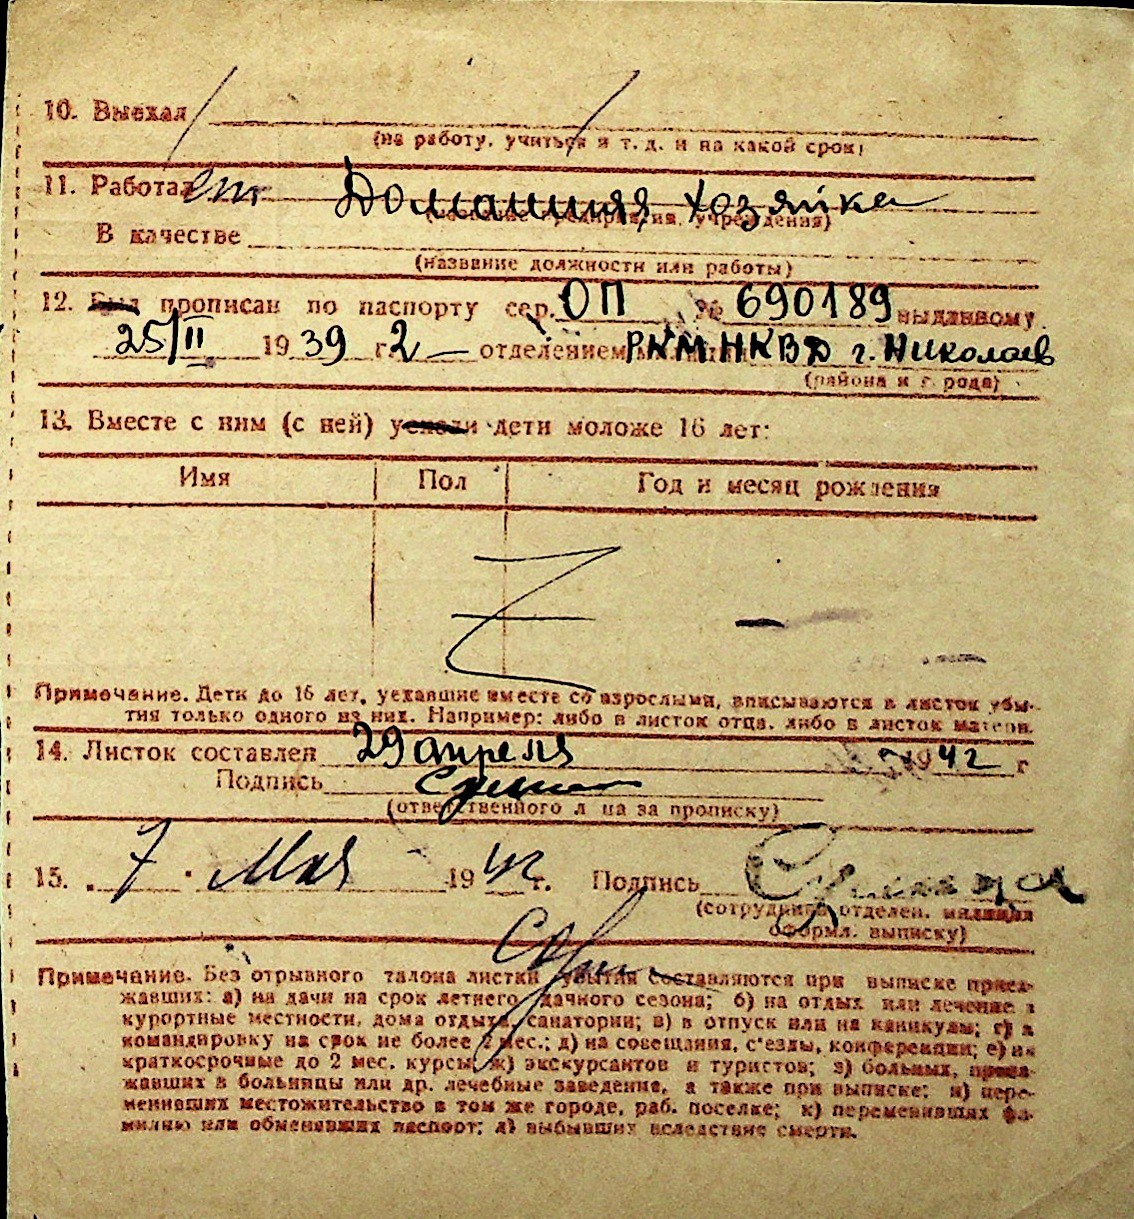 10. Выехал
(на работу, учиться и т. д. и на какой срок)
11. Работает Домашняя хозяйка
(название предприятия, учреждения)
В качестве
(название должности или работы)
12. Был прописан по паспорту сер. ОП № 690189 выданному
25/II 1939 г. 2 — отделением РКМ НКВД г. Николаев
(района и города)
13. Вместе с ним (с ней) уехали дети моложе 16 лет:
Имя Пол Год и месяц рождения
Z —
Примечание. Дети до 16 лет, уехавшие вместе со взрослыми, вписываются в листок убы-
тия только одного из них. Например: либо в листок отца, либо в листок матери.
14. Листок составлен 29 апреля 1942 г
Подпись
(ответственного лица за прописку)
15. 7 Мая 1942 г. Подпись
(сотрудника отделен. милиции
оформл. выписку)
Примечание. Без отрывного талона листки убытия составляются при выписке приез-
жавших: а) на дачи на срок летнего дачного сезона; б) на отдых или лечение в
курортные местности, дома отдыха, санатории; в) в отпуск или на каникулы; г) в
командировку на срок не более 2 мес.; д) на совещания, с'езды, конференции; е) на
краткосрочные до 2 мес. курсы; ж) экскурсантов и туристов; з) больных, приез-
жавших в больницы или др. лечебные заведения, а также при выписке: и) пере-
менивших местожительство в том же городе, раб. поселке; к) переменивших фа-
милию или обменявших паспорт; л) выбывших вследствие смерти.